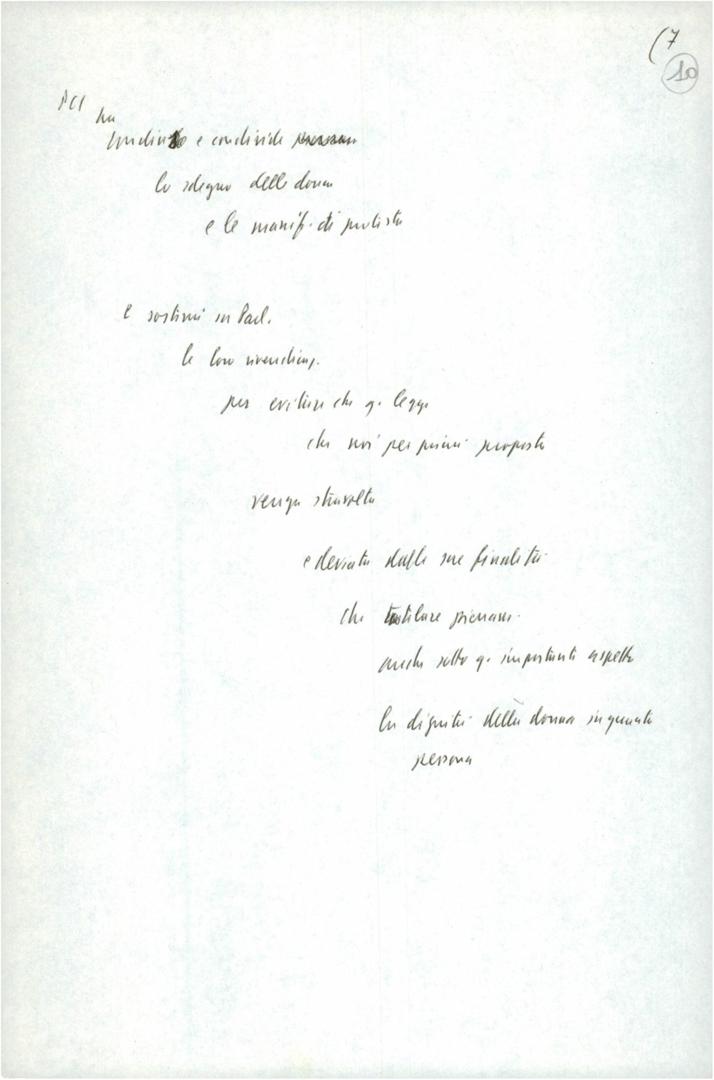 (7
10
PCI ha
condiviso e condivide
lo sdegno delle donne
e le manif. di protesta
e sostiene in Parl.
le loro rivendicaz.
per evitare che q. legge
che noi per primi proposto
venga stravolta
e deviata dalle sue finalità
che tutelare pienam.
anche sotto q. importanti aspetto
la dignità della donna in quanto
persona